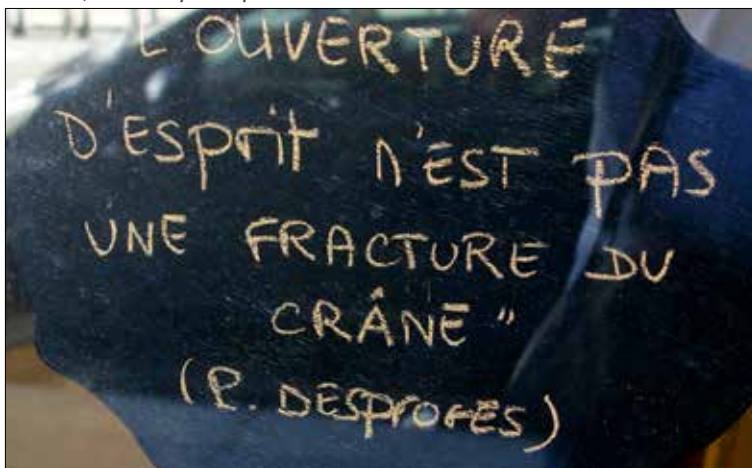 L'OUVERTURE
D'ESprit N'EST PAS
UNE FRACTURE DU
CRÂNE"
(P. DESPROGES)